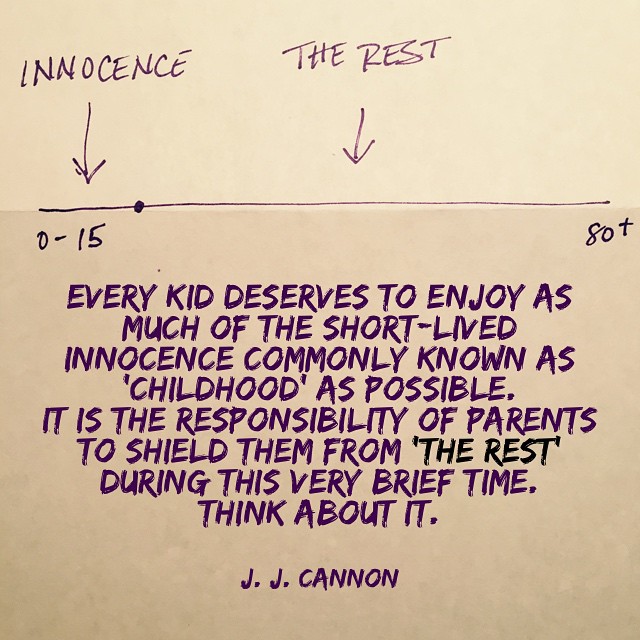 INNOCENCE
THE REST
0-15
80+
EVERY KID DESERVES TO ENJOY AS
MUCH OF THE SHORT-LIVED
INNOCENCE COMMONLY KNOWN AS
'CHILDHOOD' AS POSSIBLE.
IT IS THE RESPONSIBILITY OF PARENTS
TO SHIELD THEM FROM 'THE REST'
DURING THIS VERY BRIEF TIME.
THINK ABOUT IT.
J. J. CANNON